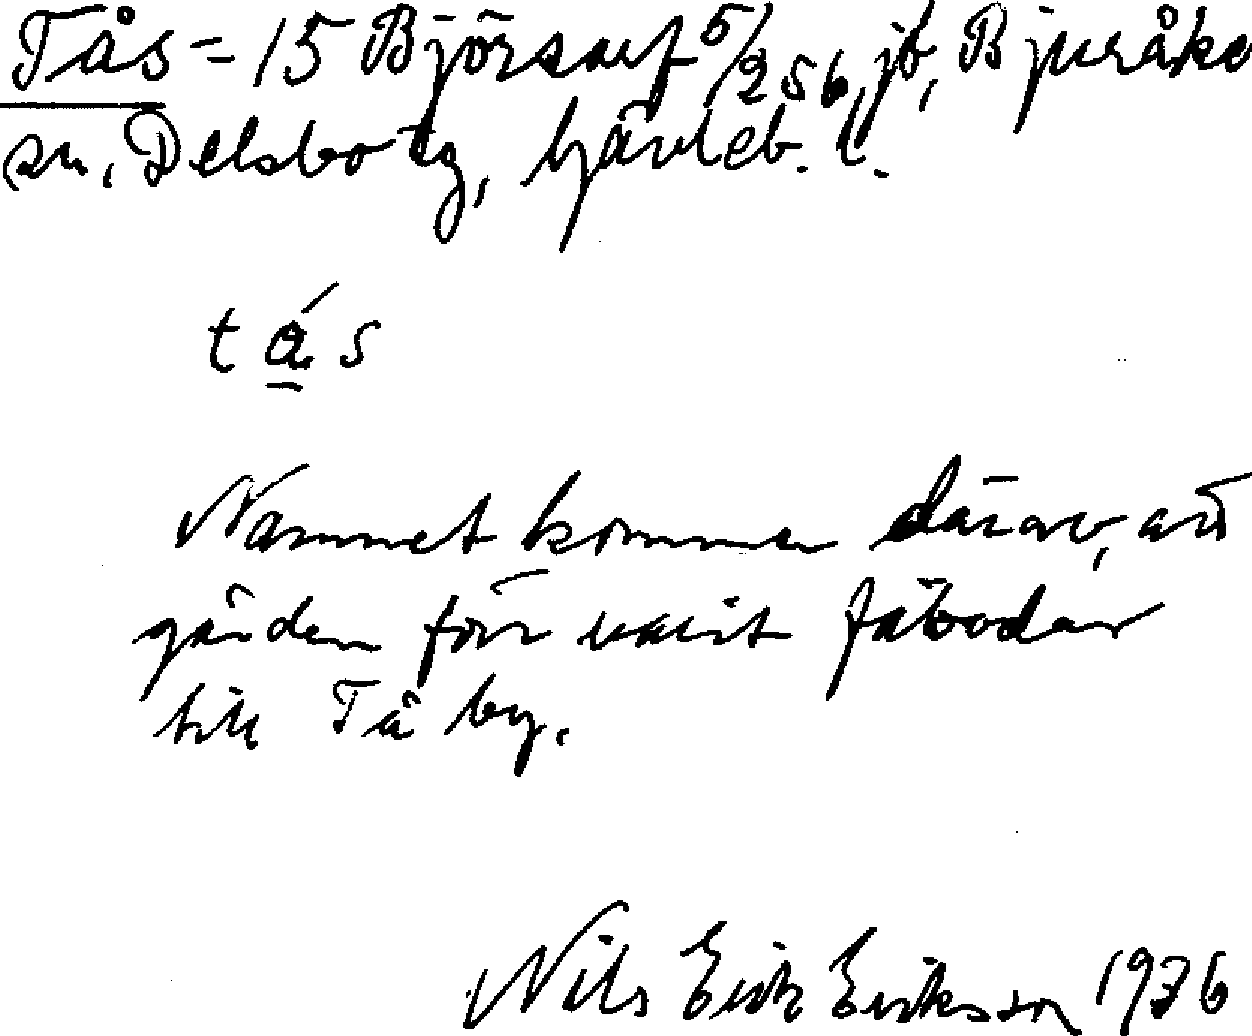 Tås = 15 Björsarf 5/256, jb, Bjuråke
sn, Delsbo tg, Gävleb. l.
tá̱s
Namnet kommer därav, att
gården förr varit fäbodar
till Tå by.
Nils Erik Eriksson 1936